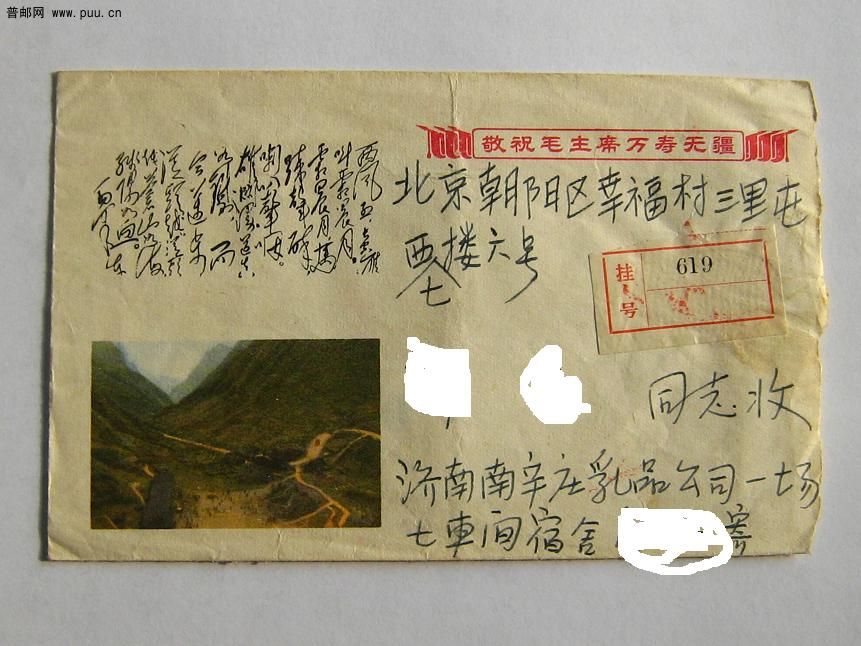 普邮网 www.puu.cn
敬祝毛主席万寿无疆
北京朝阳区幸福村三里屯
西七楼六号
挂号
619
同志收
济南南辛庄乳品公司一场
七車间宿舍
寄
西风烈,长空雁
叫霜晨月。
霜晨月,馬
蹄聲碎,
喇叭聲咽。
雄關漫道真
如鐵,而
今邁步
從頭越,從頭
越,蒼山如海,
殘陽如血。
毛泽东